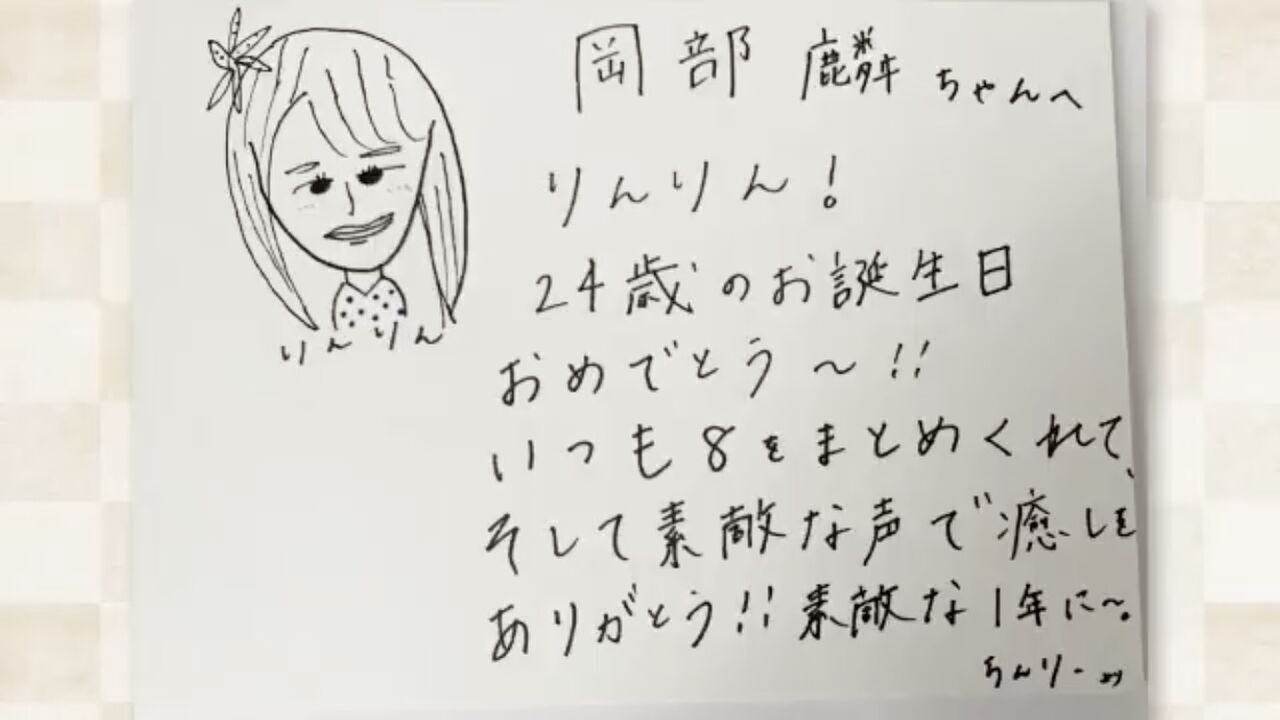 岡部麟ちゃんへ
りんりん
りんりん!
24歳のお誕生日
おめでとう〜!!
いつも8をまとめくれて、
そして素敵な声で癒しを
ありがとう!!素敵な1年に〜。
ちんりーより